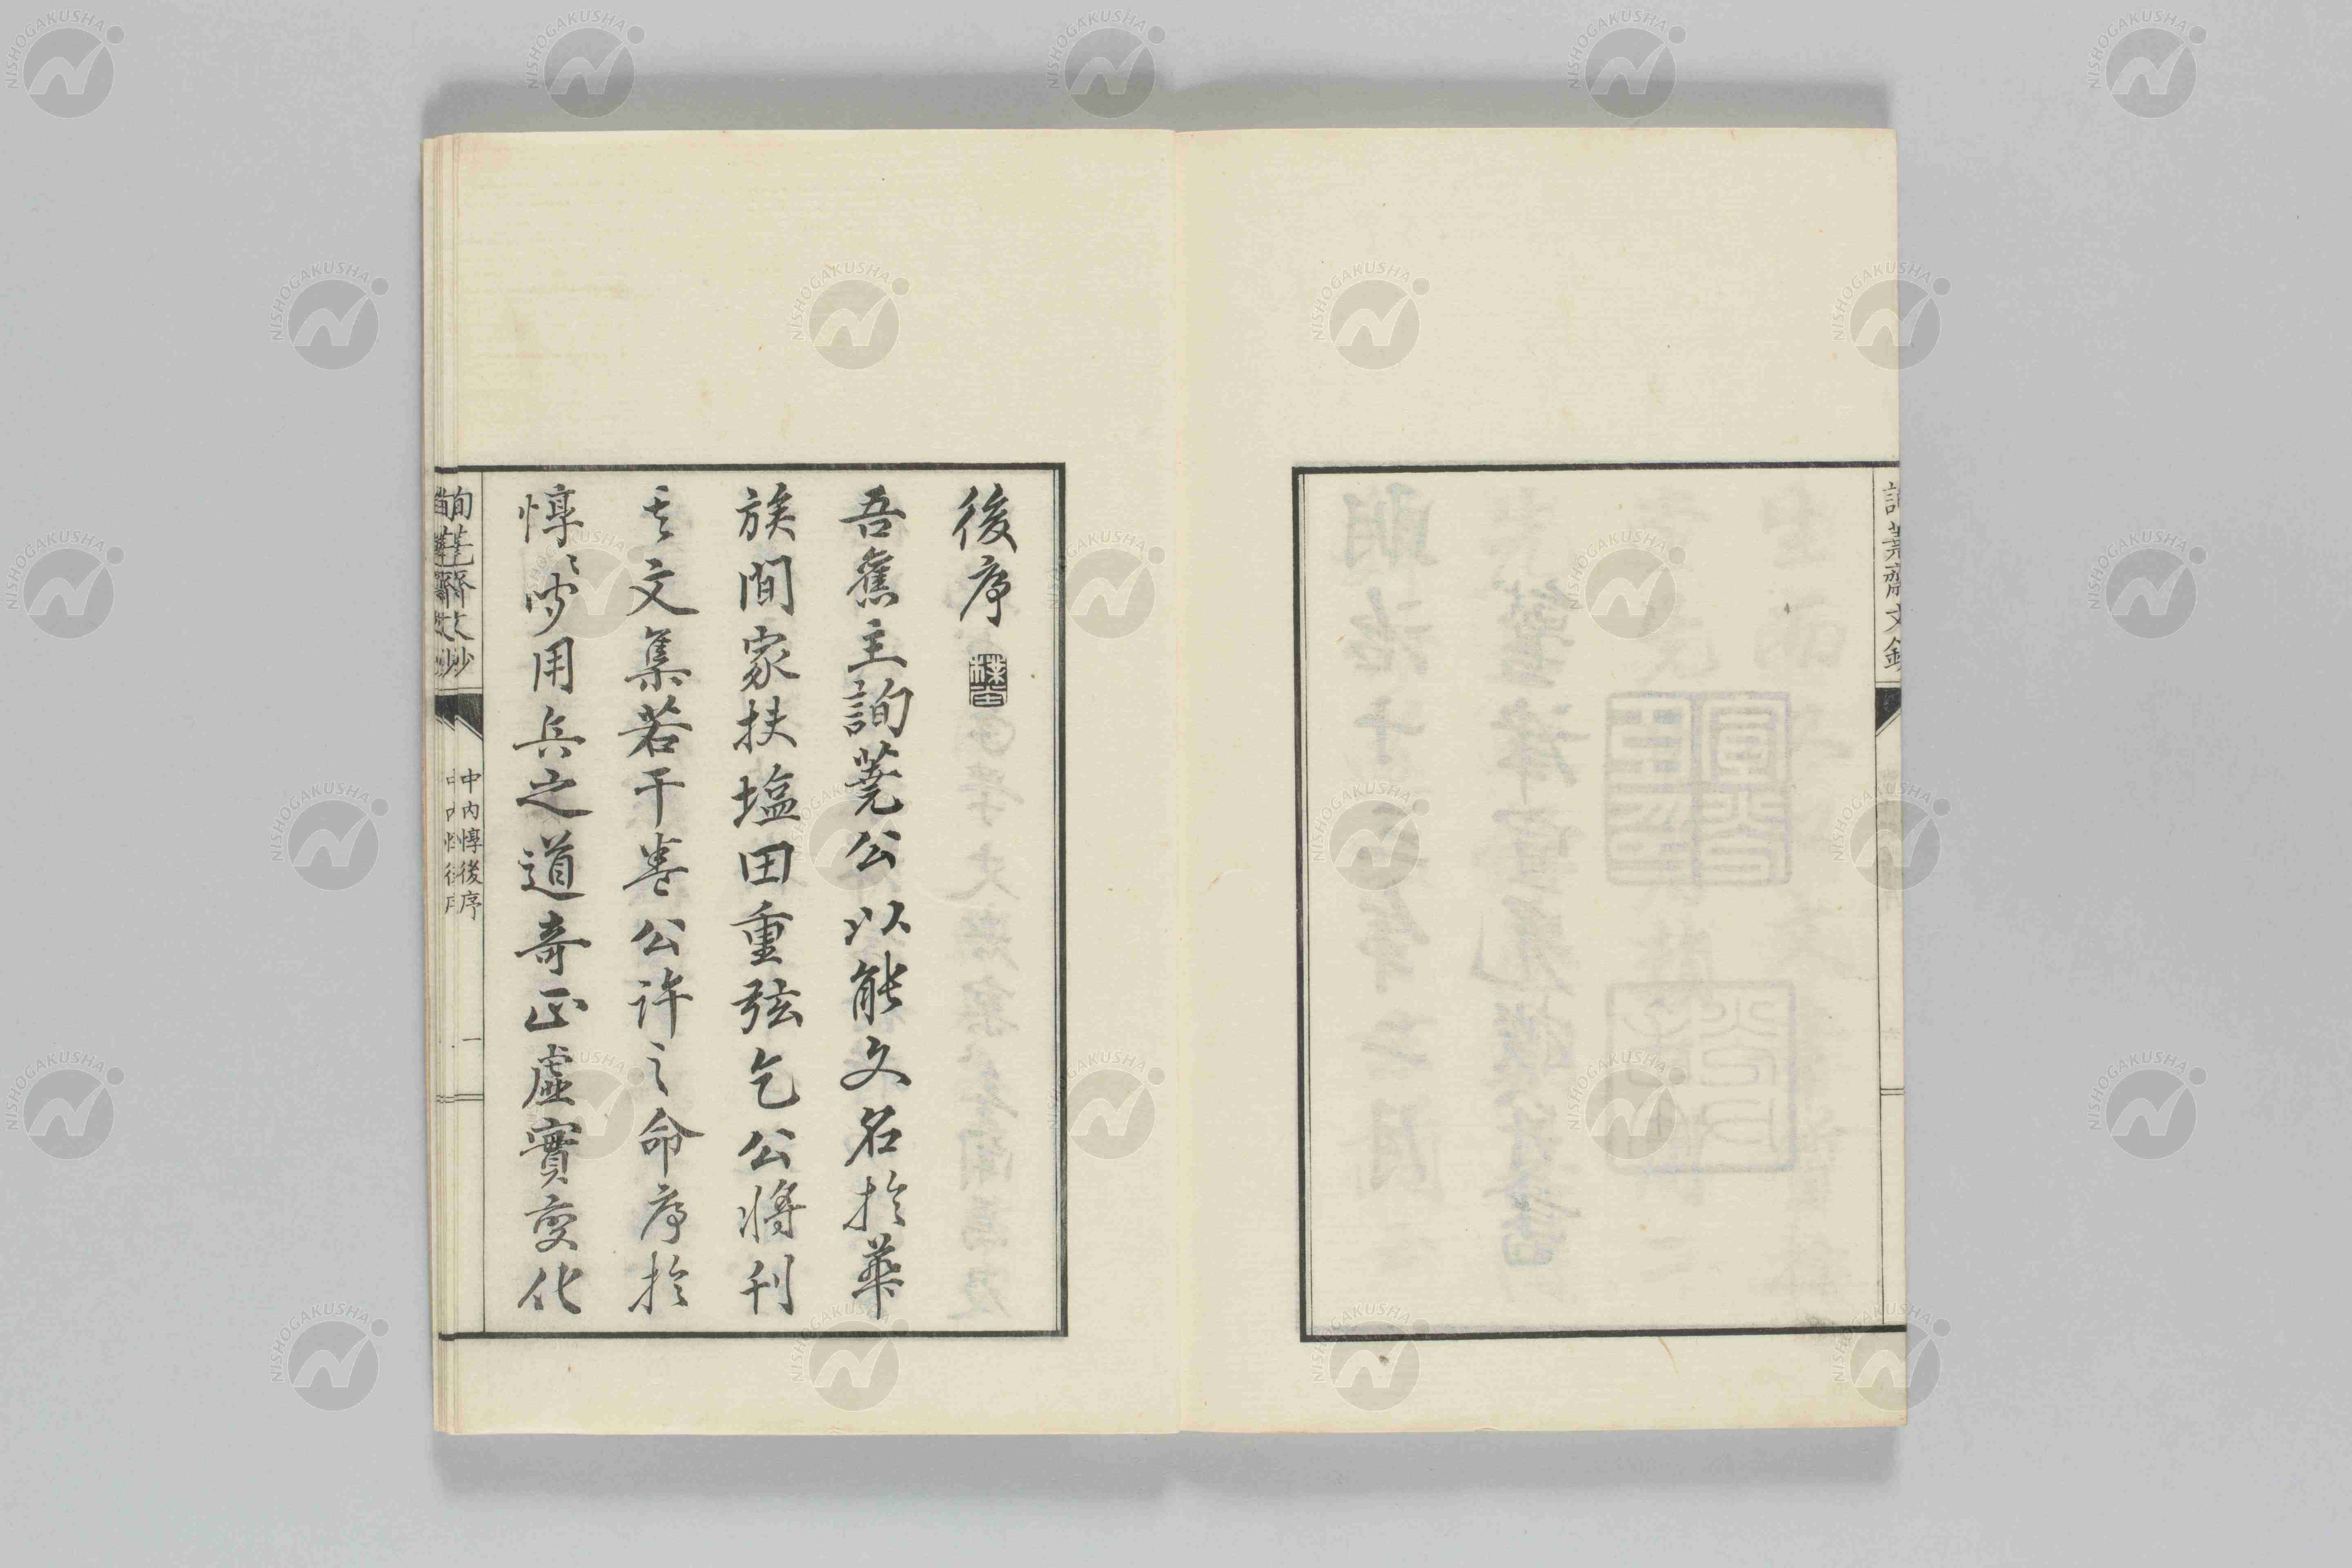 詢蕘齋文鈔
後序
樸堂
吾舊主詢蕘公以能文名於華
族間家扶塩田重弦乞公將刊
其文集若干卷公許之命序於
惇〻聞用兵之道奇正虛實變化
中内惇後序
一
NISHOGAKUSHA